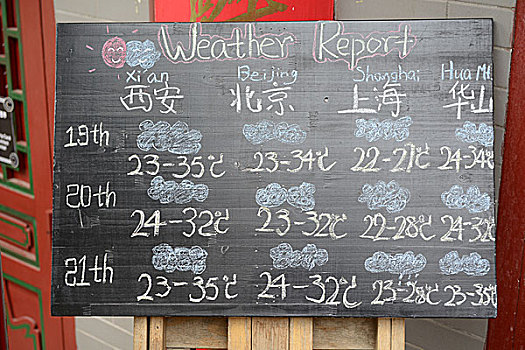 Weather Report
Xi'an Beijing Shanghai Hua Mt
西安 北京 上海 华山
19th 23-35℃ 23-34℃ 22-27℃ 24-34℃
20th 24-32℃ 23-32℃ 22-28℃ 24-32℃
21th 23-35℃ 24-32℃ 23-28℃ 23-35℃